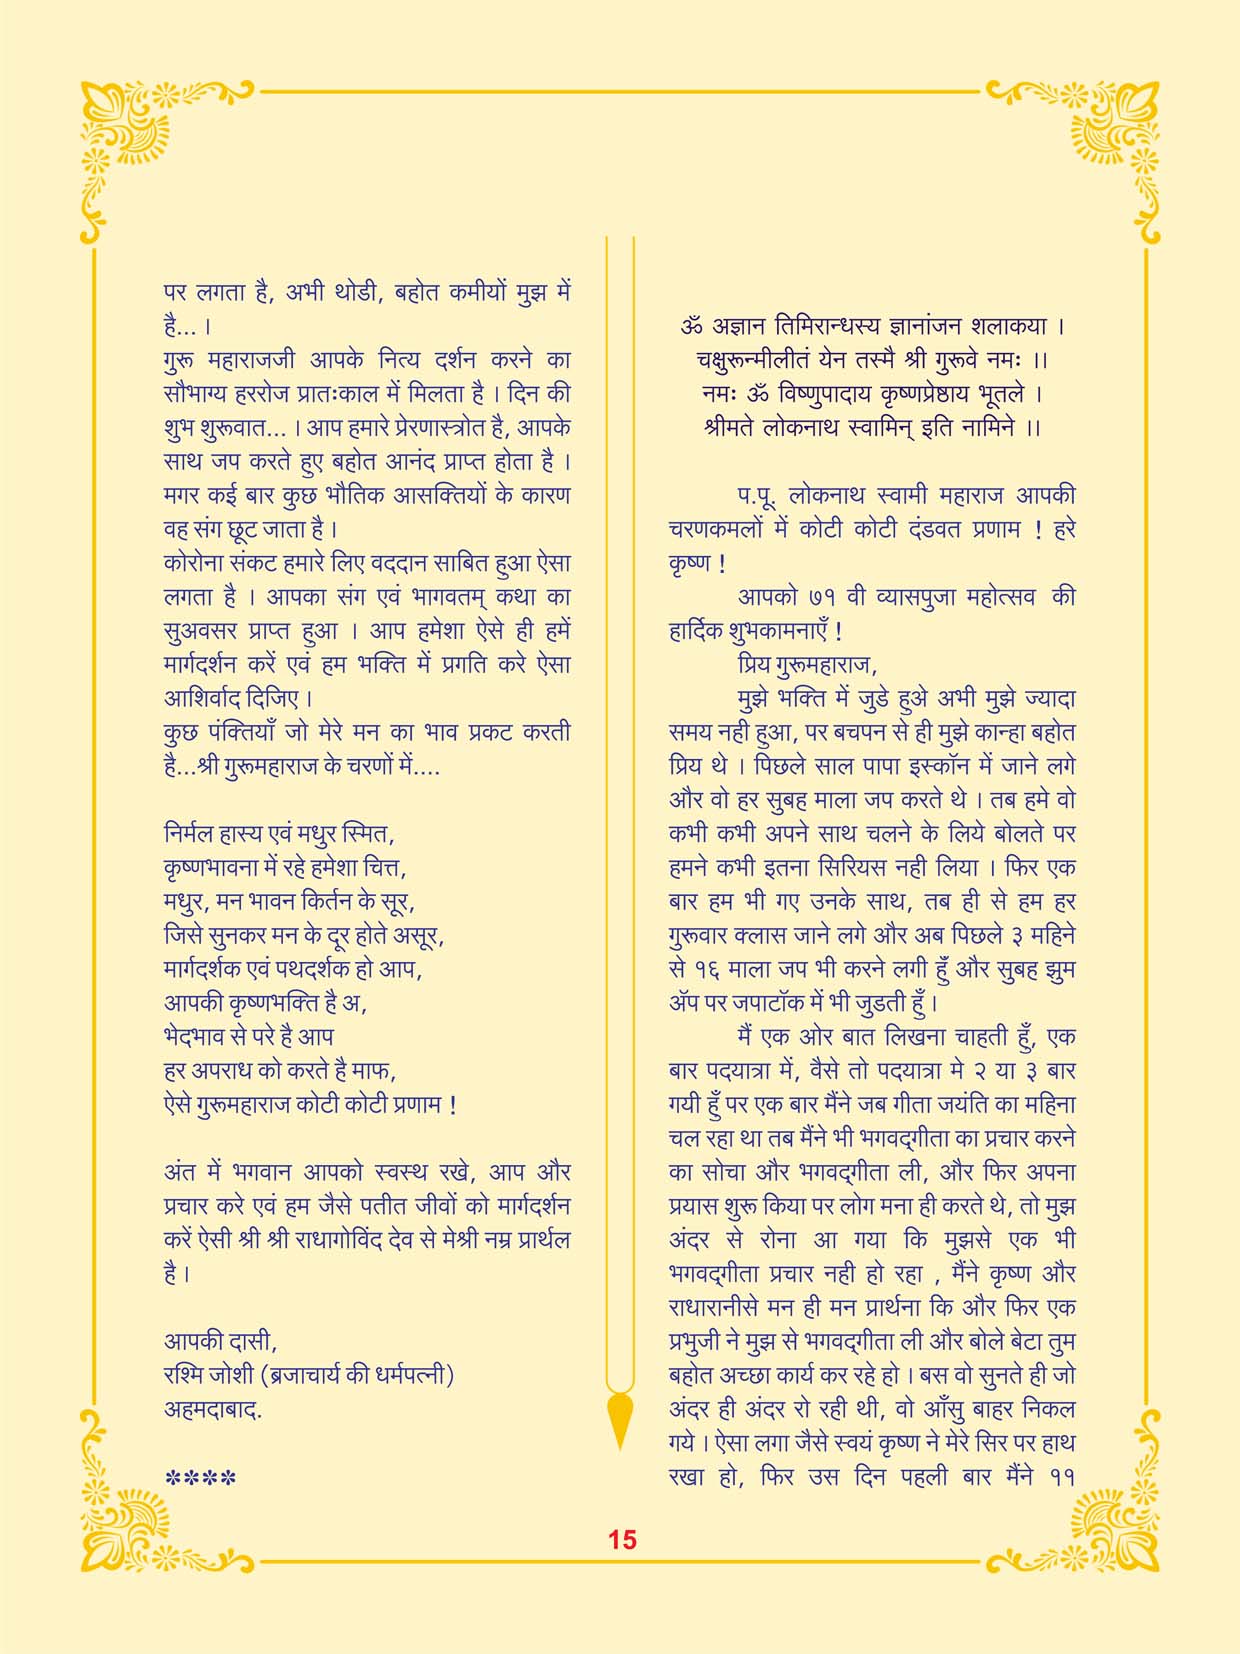 पर लगता है, अभी थोडी, बहोत कमीयों मुझ में
है... ।
गुरू महाराजजी आपके नित्य दर्शन करने का
सौभाग्य हररोज प्रातःकाल में मिलता है । दिन की
शुभ शुरूवात... । आप हमारे प्रेरणास्त्रोत है, आपके
साथ जप करते हुए बहोत आनंद प्राप्त होता है ।
मगर कई बार कुछ भौतिक आसक्तियों के कारण
वह संग छूट जाता है ।
कोरोना संकट हमारे लिए वददान साबित हुआ ऐसा
लगता है । आपका संग एवं भागवतम् कथा का
सुअवसर प्राप्त हुआ । आप हमेशा ऐसे ही हमें
मार्गदर्शन करें एवं हम भक्ति में प्रगति करे ऐसा
आशिर्वाद दिजिए ।
कुछ पंक्तियाँ जो मेरे मन का भाव प्रकट करती
है...श्री गुरूमहाराज के चरणों में....
निर्मल हास्य एवं मधुर स्मित,
कृष्णभावना में रहे हमेशा चित्त,
मधुर, मन भावन किर्तन के सूर,
जिसे सुनकर मन के दूर होते असूर,
मार्गदर्शक एवं पथदर्शक हो आप,
आपकी कृष्णभक्ति है अ,
भेदभाव से परे है आप
हर अपराध को करते है माफ,
ऐसे गुरूमहाराज कोटी कोटी प्रणाम !
अंत में भगवान आपको स्वस्थ रखे, आप और
प्रचार करे एवं हम जैसे पतीत जीवों को मार्गदर्शन
करें ऐसी श्री श्री राधागोविंद देव से मेश्री नम्र प्रार्थल
है ।
आपकी दासी,
रश्मि जोशी (ब्रजाचार्य की धर्मपत्नी)
अहमदाबाद.
****
ॐ अज्ञान तिमिरान्धस्य ज्ञानांजन शलाकया ।
चक्षुरून्मीलीतं येन तस्मै श्री गुरूवे नमः ।।
नमः ॐ विष्णुपादाय कृष्णप्रेष्ठाय भूतले ।
श्रीमते लोकनाथ स्वामिन् इति नामिने ।।
प.पू. लोकनाथ स्वामी महाराज आपकी
चरणकमलों में कोटी कोटी दंडवत प्रणाम ! हरे
कृष्ण !
आपको ७१ वी व्यासपुजा महोत्सव की
हार्दिक शुभकामनाएँ !
प्रिय गुरूमहाराज,
मुझे भक्ति में जुडे हुअे अभी मुझे ज्यादा
समय नही हुआ, पर बचपन से ही मुझे कान्हा बहोत
प्रिय थे । पिछले साल पापा इस्कॉन में जाने लगे
और वो हर सुबह माला जप करते थे । तब हमे वो
कभी कभी अपने साथ चलने के लिये बोलते पर
हमने कभी इतना सिरियस नही लिया । फिर एक
बार हम भी गए उनके साथ, तब ही से हम हर
गुरूवार क्लास जाने लगे और अब पिछले ३ महिने
से १६ माला जप भी करने लगी हुँ और सुबह झुम
ॲप पर जपाटॉक में भी जुडती हुँ ।
मैं एक ओर बात लिखना चाहती हुँ, एक
बार पदयात्रा में, वैसे तो पदयात्रा मे २ या ३ बार
गयी हुँ पर एक बार मैंने जब गीता जयंति का महिना
चल रहा था तब मैंने भी भगवद्‌गीता का प्रचार करने
का सोचा और भगवद्‌गीता ली, और फिर अपना
प्रयास शुरू किया पर लोग मना ही करते थे, तो मुझ
अंदर से रोना आ गया कि मुझसे एक भी
भगवद्‌गीता प्रचार नही हो रहा , मैंने कृष्ण और
राधारानीसे मन ही मन प्रार्थना कि और फिर एक
प्रभुजी ने मुझ से भगवद्‌गीता ली और बोले बेटा तुम
बहोत अच्छा कार्य कर रहे हो । बस वो सुनते ही जो
अंदर ही अंदर रो रही थी, वो आँसु बाहर निकल
गये । ऐसा लगा जैसे स्वयं कृष्ण ने मेरे सिर पर हाथ
रखा हो, फिर उस दिन पहली बार मैंने ११
15